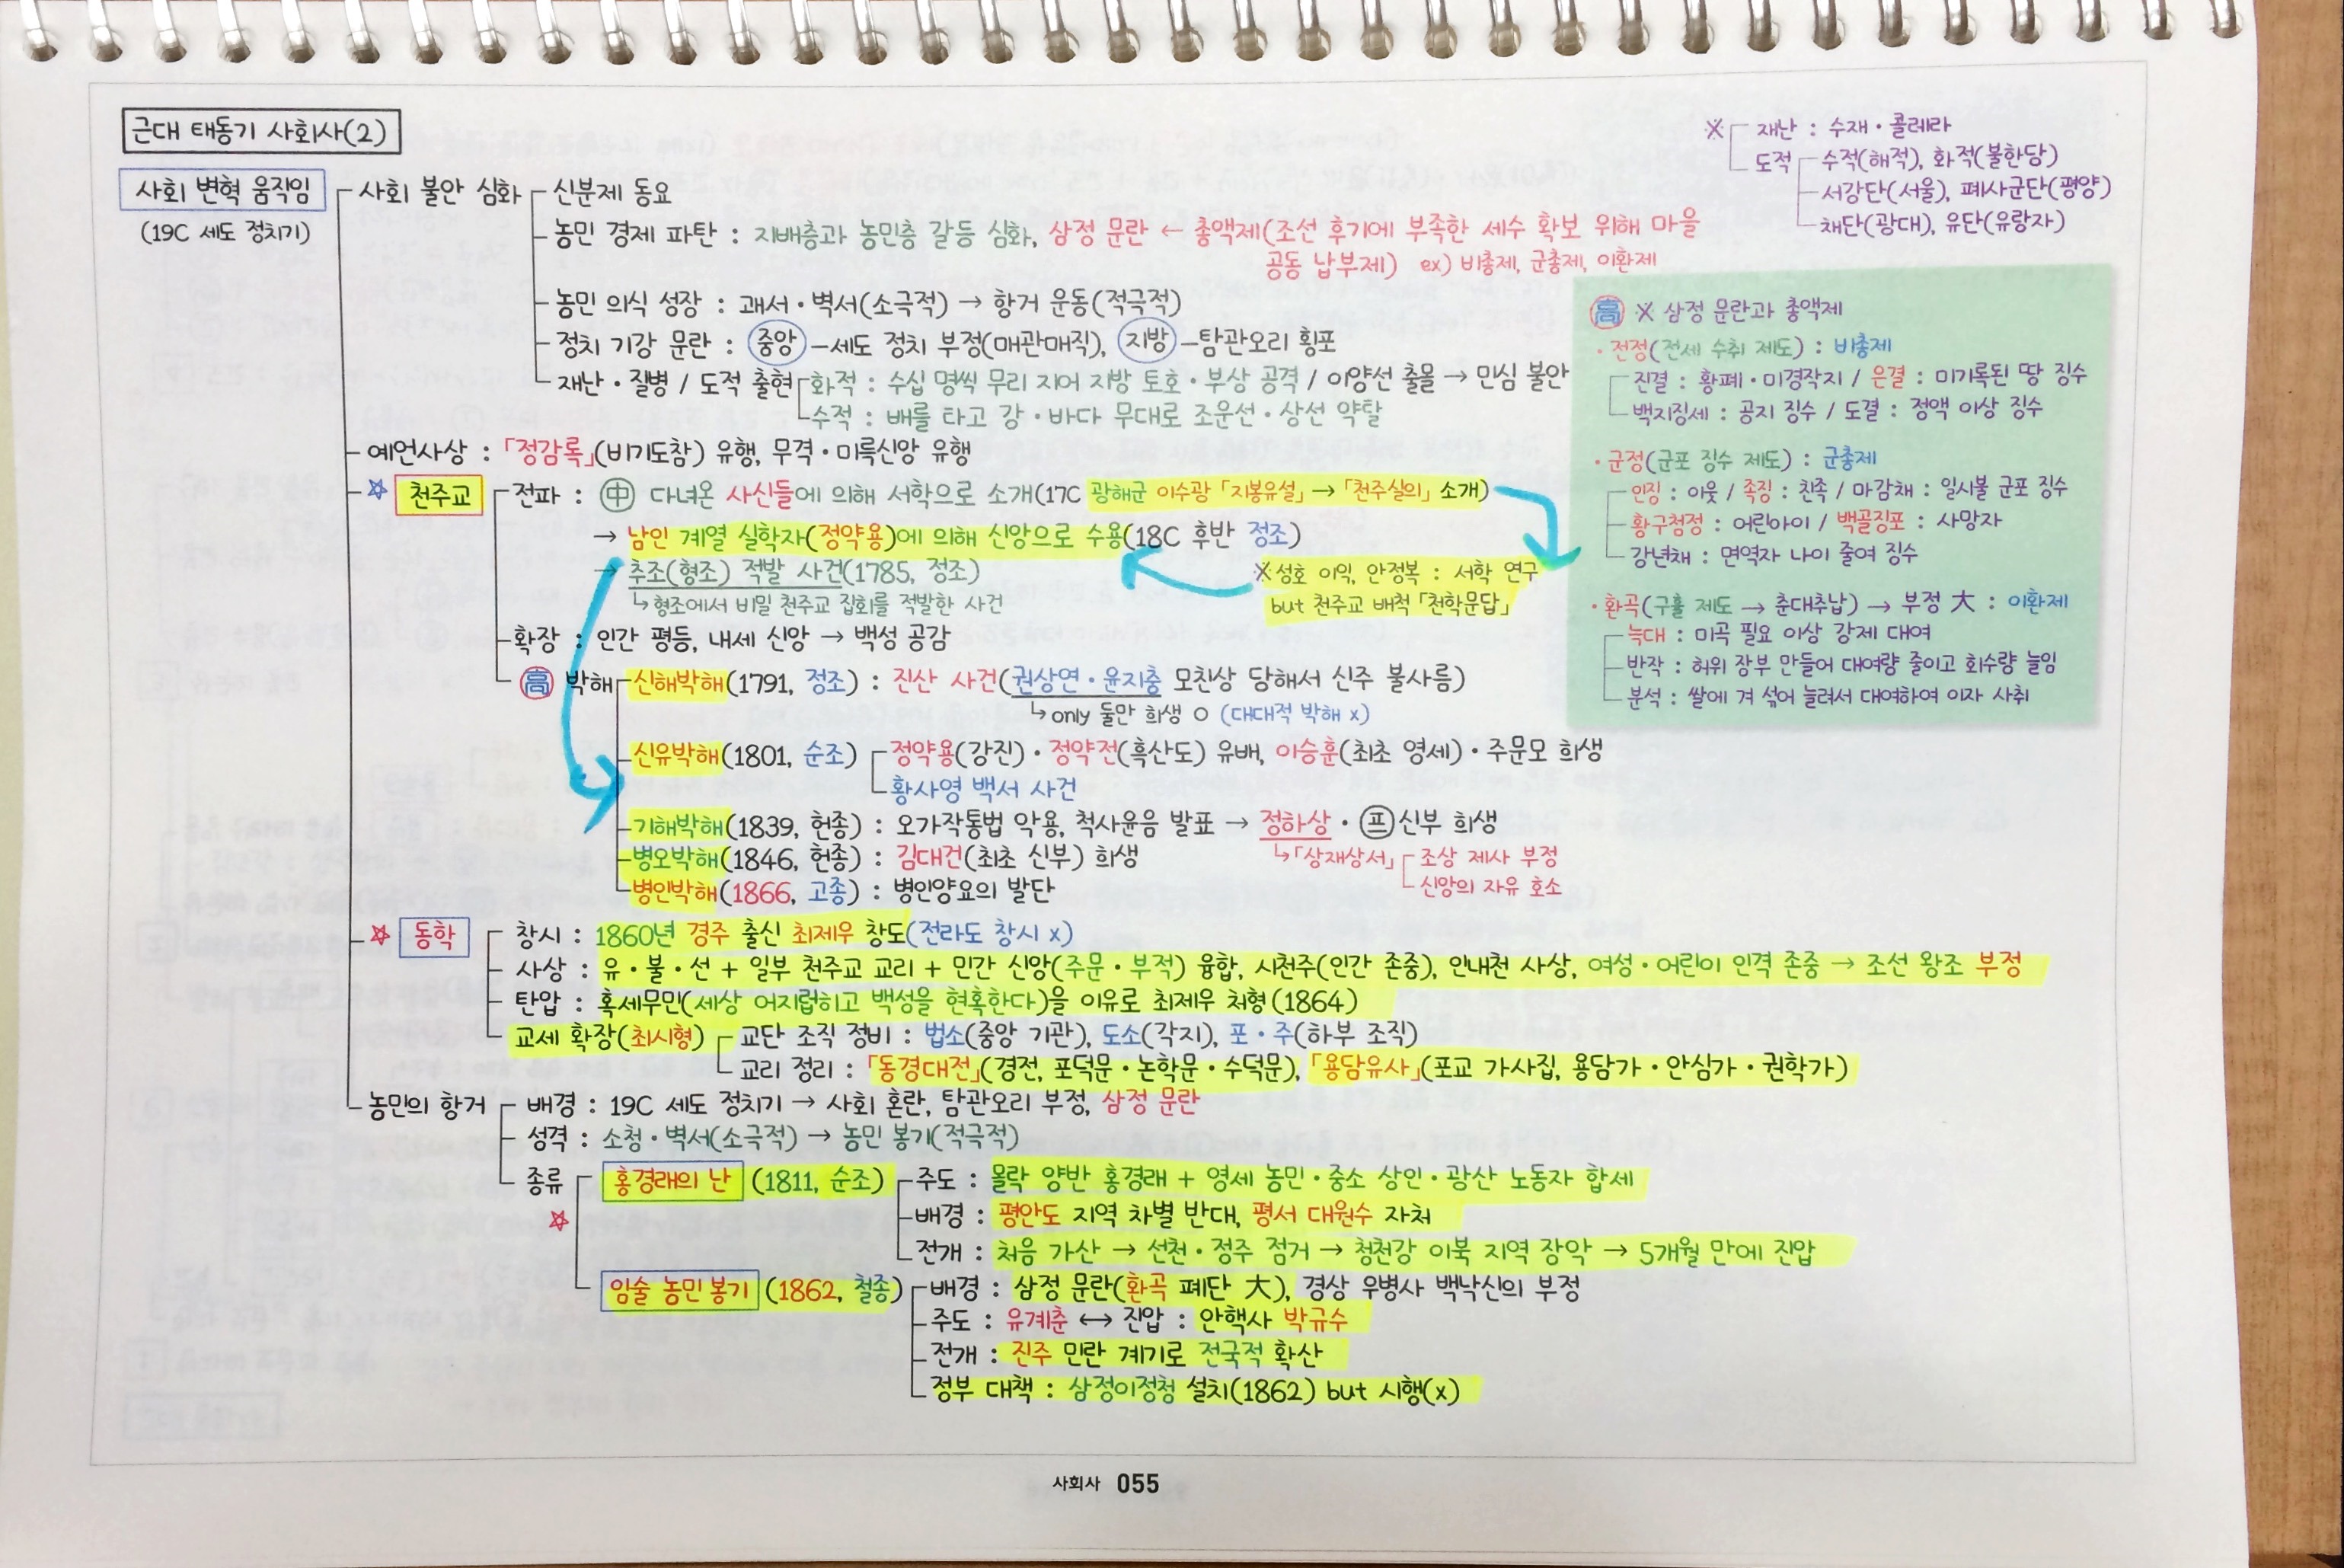 근대 태동기 사회사(2)
※ 재난 : 수재·콜레라
도적 수적(해적), 화적(불한당)
서강단(서울), 폐사군단(평양)
채단(광대), 유단(유랑자)
사회 변혁 움직임
(19C 세도 정치기)
사회 불안 심화 신분제 동요
농민 경제 파탄 : 지배층과 농민층 갈등 심화, 삼정 문란 ← 총액제(조선 후기에 부족한 세수 확보 위해 마을
공동 납부제) ex) 비총제, 군총제, 이환제
농민 의식 성장 : 괘서·벽서(소극적) → 항거 운동(적극적)
정치 기강 문란 : 중앙-세도 정치 부정(매관매직), 지방-탐관오리 횡포
재난·질병 / 도적 출현 화적 : 수십 명씩 무리 지어 지방 토호·부상 공격 / 이양선 출몰 → 민심 불안
수적 : 배를 타고 강·바다 무대로 조운선·상선 약탈
예언사상 : 「정감록」(비기도참) 유행, 무격·미륵신앙 유행
☆ 천주교 전파 : 中 다녀온 사신들에 의해 서학으로 소개(17C 광해군 이수광 「지봉유설」 → 「천주실의」 소개)
→ 남인 계열 실학자(정약용)에 의해 신앙으로 수용(18C 후반 정조)
→ 추조(형조) 적발 사건(1785, 정조)
↳ 형조에서 비밀 천주교 집회를 적발한 사건
※성호 이익, 안정복 : 서학 연구
but 천주교 배척 「천학문답」
확장 : 인간 평등, 내세 신앙 → 백성 공감
高 박해 신해박해(1791, 정조) : 진산 사건(권상연·윤지충 모친상 당해서 신주 불사름)
↳ only 둘만 희생 O (대대적 박해 x)
신유박해(1801, 순조) 정약용(강진)·정약전(흑산도) 유배, 이승훈(최초 영세)·주문모 희생
황사영 백서 사건
기해박해(1839, 헌종) : 오가작통법 악용, 척사윤음 발표 → 정하상·프신부 희생
↳「상재상서」 조상 제사 부정
신앙의 자유 호소
병오박해(1846, 헌종) : 김대건(최초 신부) 희생
병인박해(1866, 고종) : 병인양요의 발단
高 ※ 삼정 문란과 총액제
·전정(전세 수취 제도) : 비총제
진결 : 황폐·미경작지 / 은결 : 미기록된 땅 징수
백지징세 : 공지 징수 / 도결 : 정액 이상 징수
·군정(군포 징수 제도) : 군총제
인징 : 이웃 / 족징 : 친족 / 마감채 : 일시불 군포 징수
황구첨정 : 어린아이 / 백골징포 : 사망자
강년채 : 면역자 나이 줄여 징수
·환곡(구휼 제도 → 춘대추납) → 부정 大 : 이환제
늑대 : 미곡 필요 이상 강제 대여
반작 : 허위 장부 만들어 대여량 줄이고 회수량 늘임
분석 : 쌀에 겨 섞어 늘려서 대여하여 이자 사취
☆ 동학 창시 : 1860년 경주 출신 최제우 창도(전라도 창시 x)
사상 : 유·불·선 + 일부 천주교 교리 + 민간 신앙(주문·부적) 융합, 시천주(인간 존중), 인내천 사상, 여성·어린이 인격 존중 → 조선 왕조 부정
탄압 : 혹세무민(세상 어지럽히고 백성을 현혹한다)을 이유로 최제우 처형(1864)
교세 확장(최시형) 교단 조직 정비 : 법소(중앙 기관), 도소(각지), 포·주(하부 조직)
교리 정리 : 「동경대전」(경전, 포덕문·논학문·수덕문), 「용담유사」(포교 가사집, 용담가·안심가·권학가)
농민의 항거 배경 : 19C 세도 정치기 → 사회 혼란, 탐관오리 부정, 삼정 문란
성격 : 소청·벽서(소극적) → 농민 봉기(적극적)
종류 ☆ 홍경래의 난 (1811, 순조) 주도 : 몰락 양반 홍경래 + 영세 농민·중소 상인·광산 노동자 합세
배경 : 평안도 지역 차별 반대, 평서 대원수 자처
전개 : 처음 가산 → 선천·정주 점거 → 청천강 이북 지역 장악 → 5개월 만에 진압
임술 농민 봉기 (1862, 철종) 배경 : 삼정 문란(환곡 폐단 大), 경상 우병사 백낙신의 부정
주도 : 유계춘 ↔ 진압 : 안핵사 박규수
전개 : 진주 민란 계기로 전국적 확산
정부 대책 : 삼정이정청 설치(1862) but 시행(x)
사회사 055